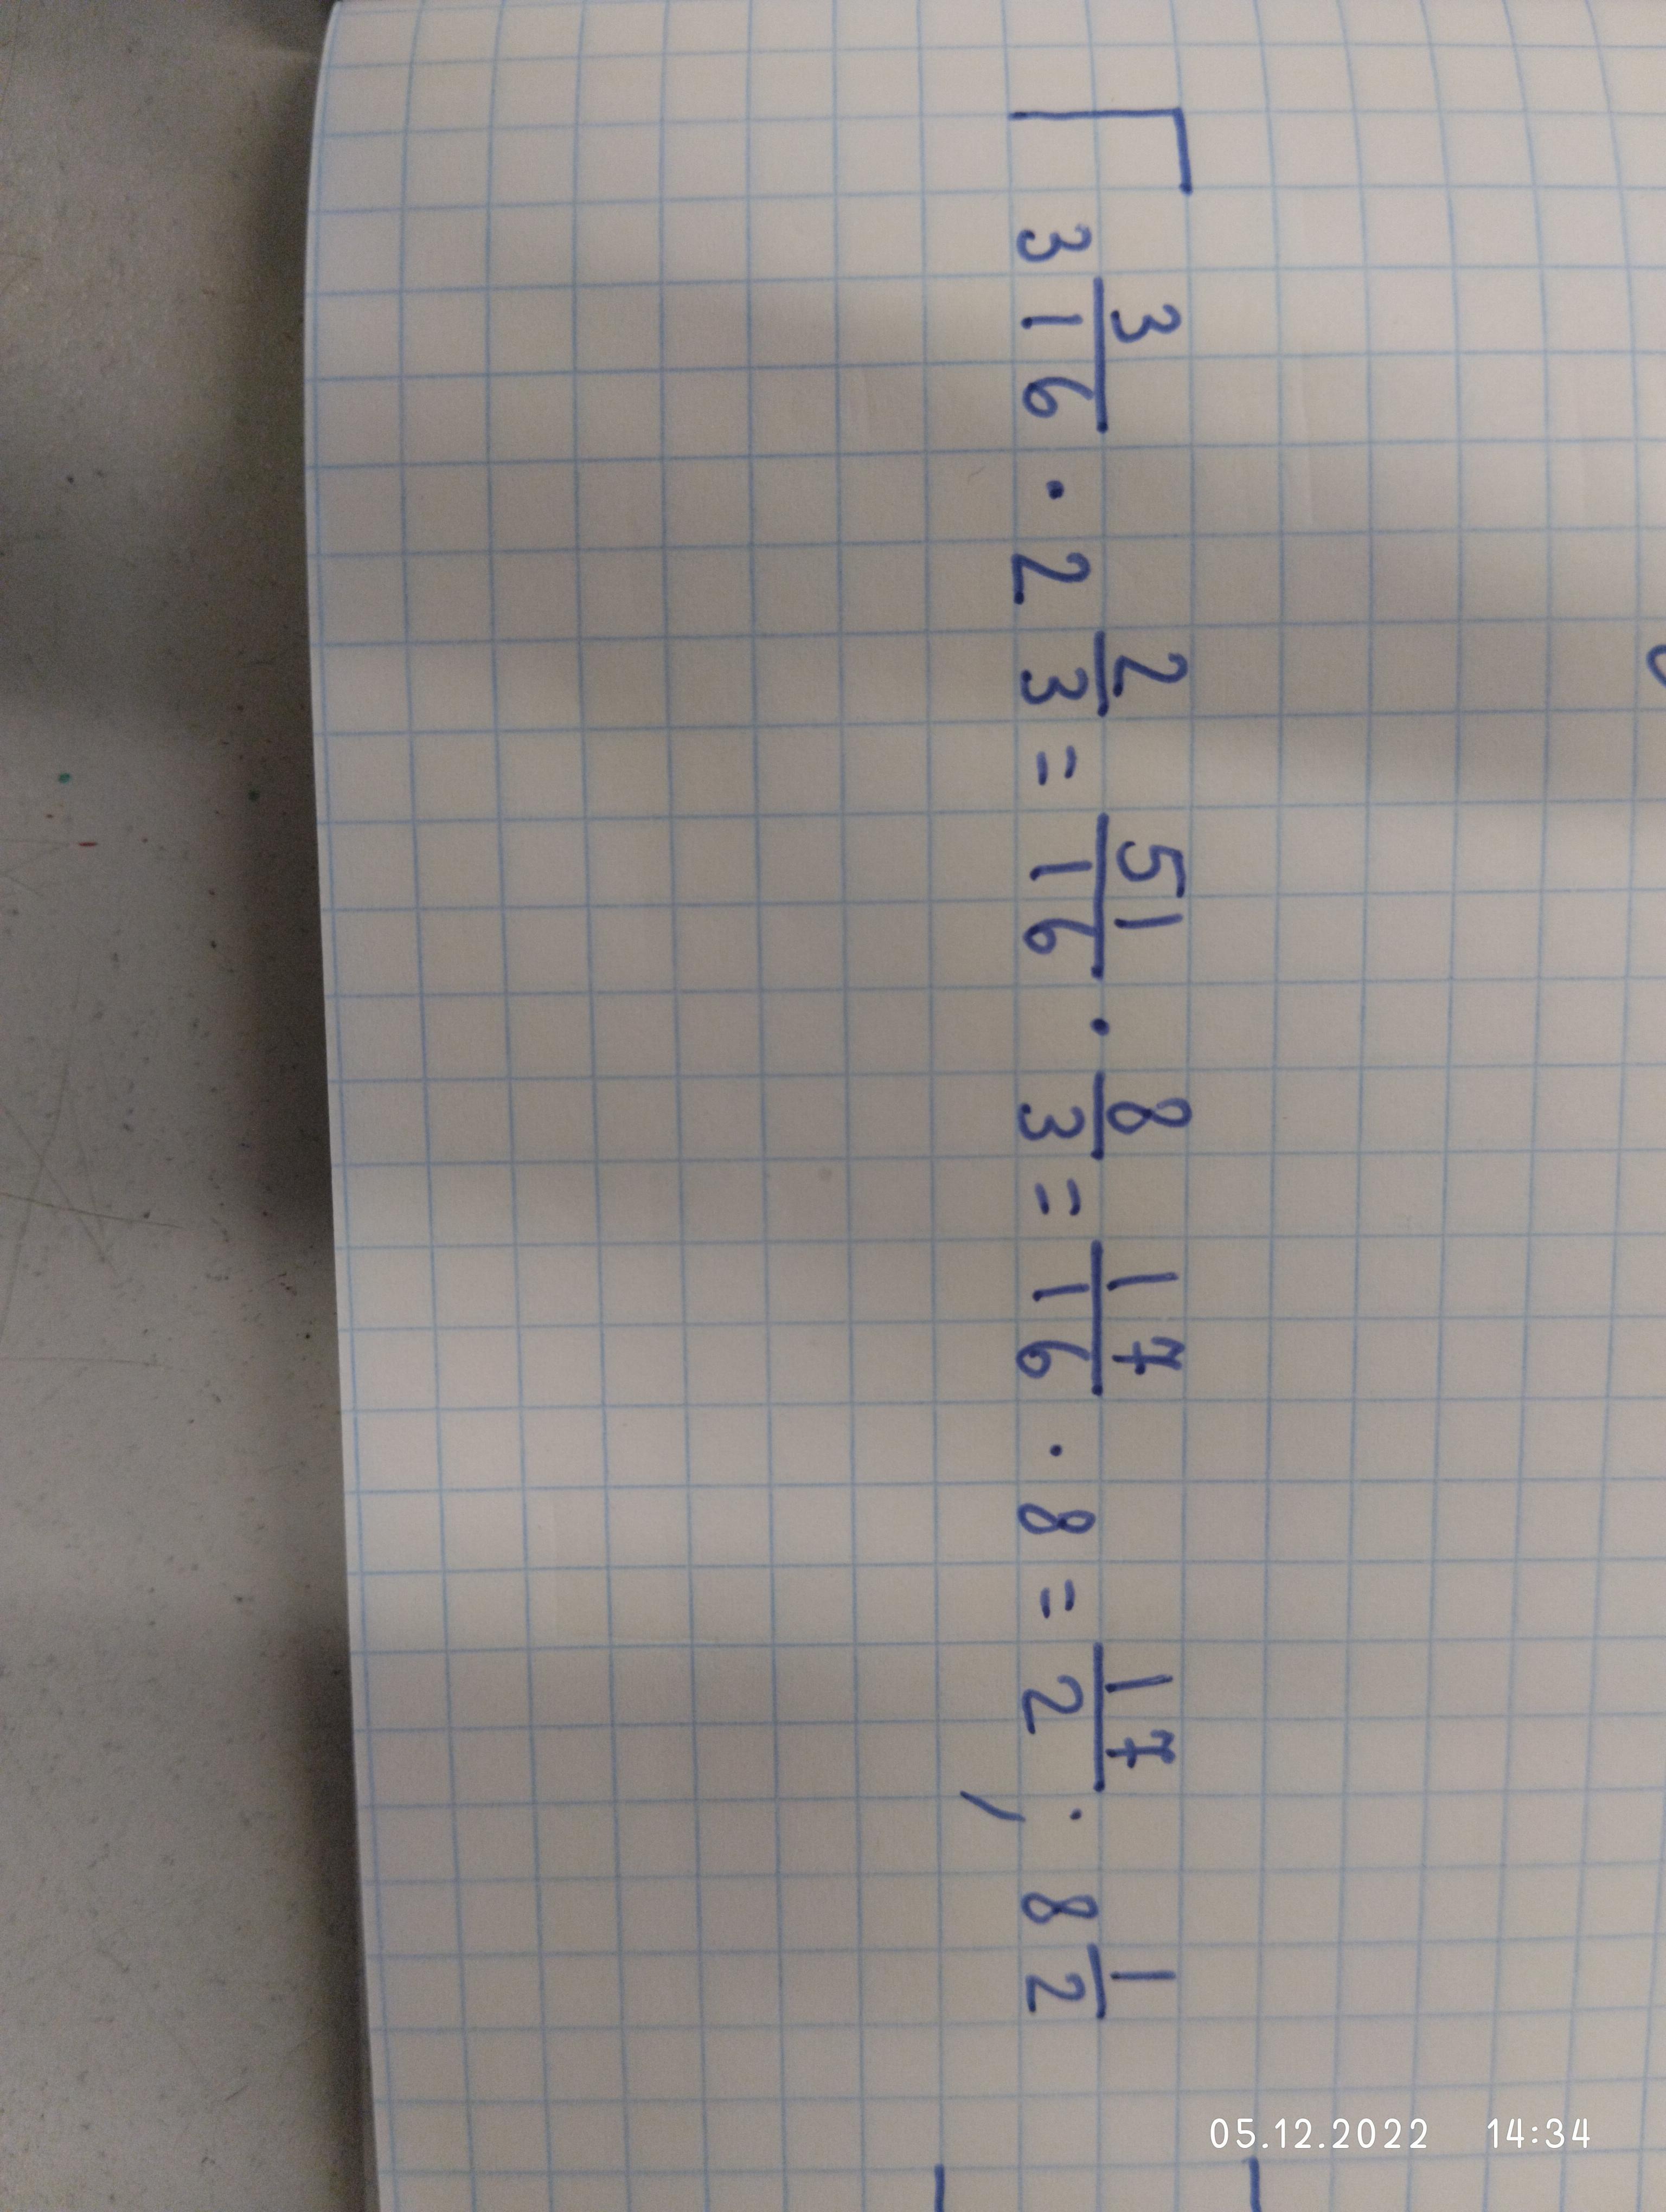 3 3/16 · 2 2/3 = 51/16 · 8/3 = 17/16 · 8 = 17/2 ; 8 1/2
05.12.2022 14:34